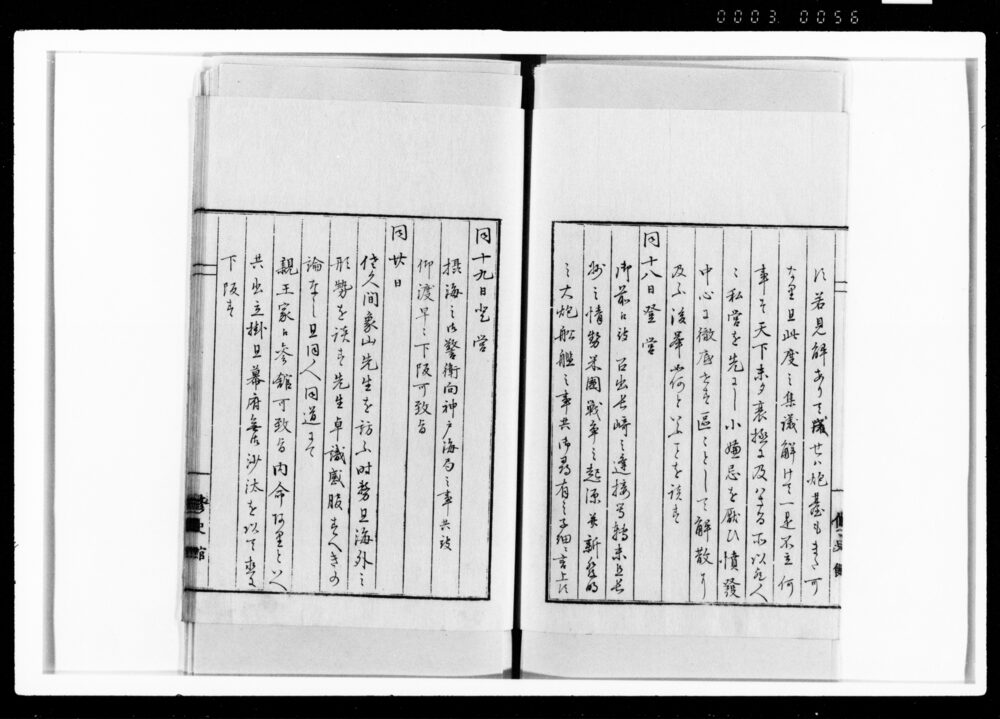 0003.0056
に若見解ありて成せハ炮臺もまた可
なり且此度之集議解けて一是不立何
事そ天下未タ衰極に及ハさる所以乱人
私営を先にし小嫌忌を厭ひ憤發
中心に徹底せす區々として解散に
及ふ後举如何と云ことを談す
同十八日登営
御前に被召出長崎之
州之情勢米國戦争之起源并新發明
之大炮船艦之事共御尋有之子細ニ言上に
同十九日登営
摂海之御警衛向神戸海局之事共被
仰渡早々下阪可致旨
同廿日
佐久間象山先生を訪ふ時勢且海外之
形勢を談す先生卓識感服すへきの
論なし且同人同道にて
親王家に参館可致旨内命阿里といへ
共出立掛且幕府無御沙汰を以て
下阪す
修史館
修史館